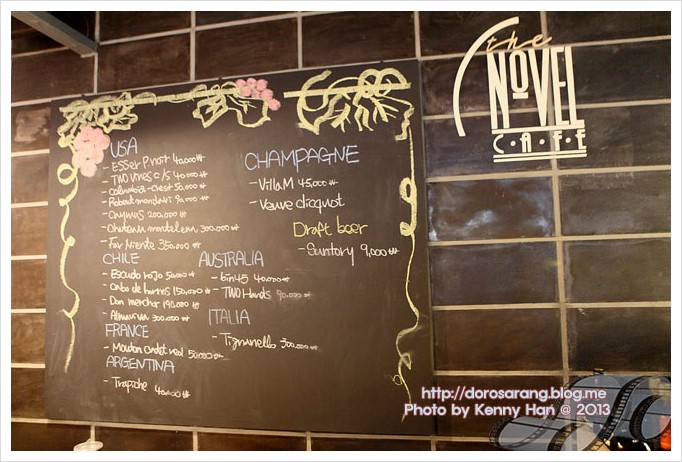 the
NOVEL
CAFE
USA
- Esser Pinot 40,000₩
- TWO Vines c/s 40,000₩
- Columbia-Crest 50,000₩
- Robert mondavi 90,000₩
- Caymus 200,000₩
- Chateau montelena 300,000₩
- Far Niente 350,000₩
CHILE
- Escudo rojo 50,000₩
- 150,000₩
- Don 190,000₩
- Almaviva 300,000₩
FRANCE
- Mouton Cadet red 50,000₩
ARGENTINA
- Trapiche 40,000₩
CHAMPAGNE
- Villa M 45,000₩
- Veuve clicquot
Draft beer
- Suntory 9,000₩
AUSTRALIA
- bin45 40,000₩
- TWO Hands 90,000₩
ITALIA
- Tignanello 300,000₩
http://dorosarang.blog.me
Photo by Kenny Han @ 2013